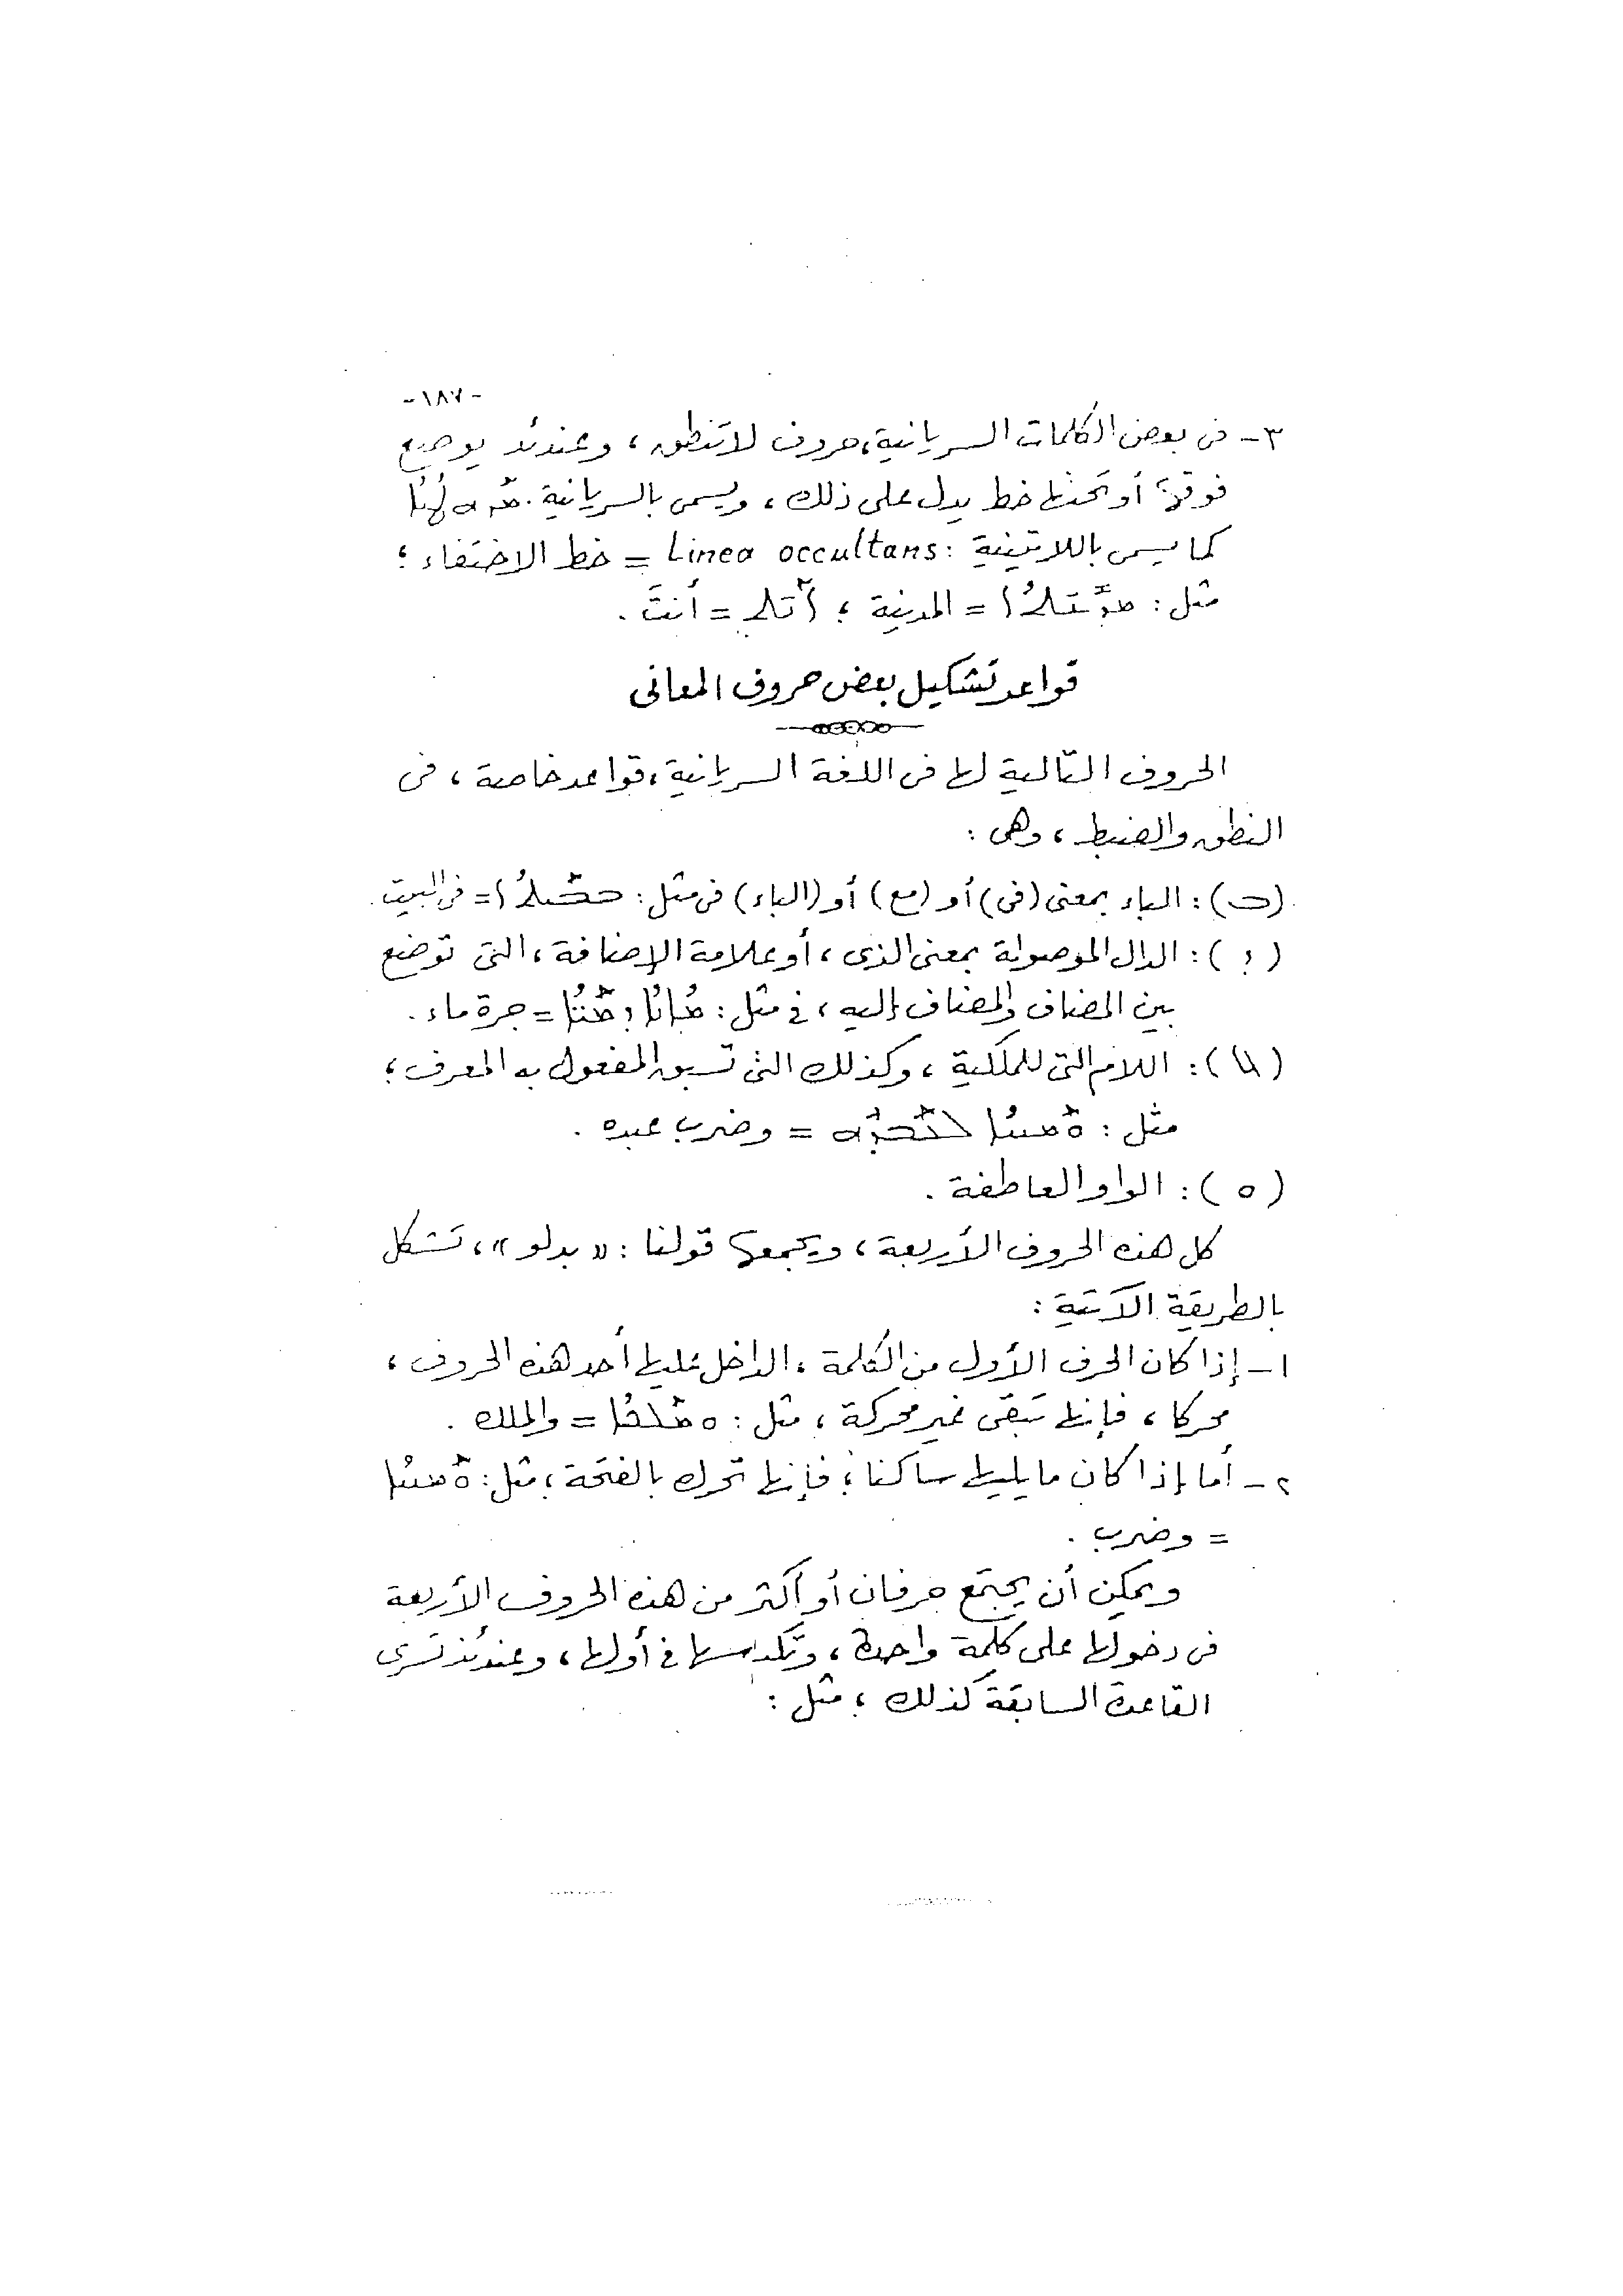 -١٨٧-
٣- فى بعض الكلمات السريانية، حروف لا تنطق، وعندئذ يوضع
فوقها أو تحتها خط يدل على ذلك، ويسمى بالسريانية:
كما يسمى باللاتينية: Linea occultans = خط الاختفاء؛
مثل: = المدينة؛ = أنتَ.
قواعد تشكيل بعض حروف المعانى
الحروف التالية لها فى اللغة السريانية، قواعد خاصة، فى
النطق والضبط، وهى:
(ܒ): الباء بمعنى (فى) أو (مع) أو (الباء) فى مثل: ܒܒܝܬܐ = فى البيت.
(ܕ): الدال الموصولة بمعنى الذى، أو علامة الإضافة، التى توضع
بين المضاف والمضاف إليه، فى مثل: = جرة ماء.
(ܠ): اللام التى للملكية، وكذلك التى تسبق المفعول به المعرف؛
مثل: ܘܰܡܚܳܐ ܠܥܰܒܕܶܗ = وضرب عبده.
(ܘ): الواو العاطفة.
كل هذه الحروف الأربعة، ويجمعها قولنا: «بدلو»، تشكل
بالطريقة الآتية:
١- إذا كان الحرف الأول من الكلمة، الداخل عليها أحد هذه الحروف،
محركا، فإنها تبقى غير محركة، مثل: ܘܡܰܠܟܳܐ = والملك.
٢- أما إذا كان ما يليها ساكنا؛ فإنها تحرك بالفتحة؛ مثل: ܘܰܡܚܳܐ
= وضرب.
ويمكن أن يجتمع حرفان أو أكثر من هذه الحروف الأربعة
فى دخولها على كلمة واحدة، فى أولها، وعندئذ تسرى
القاعدة السابقة كذلك؛ مثل: